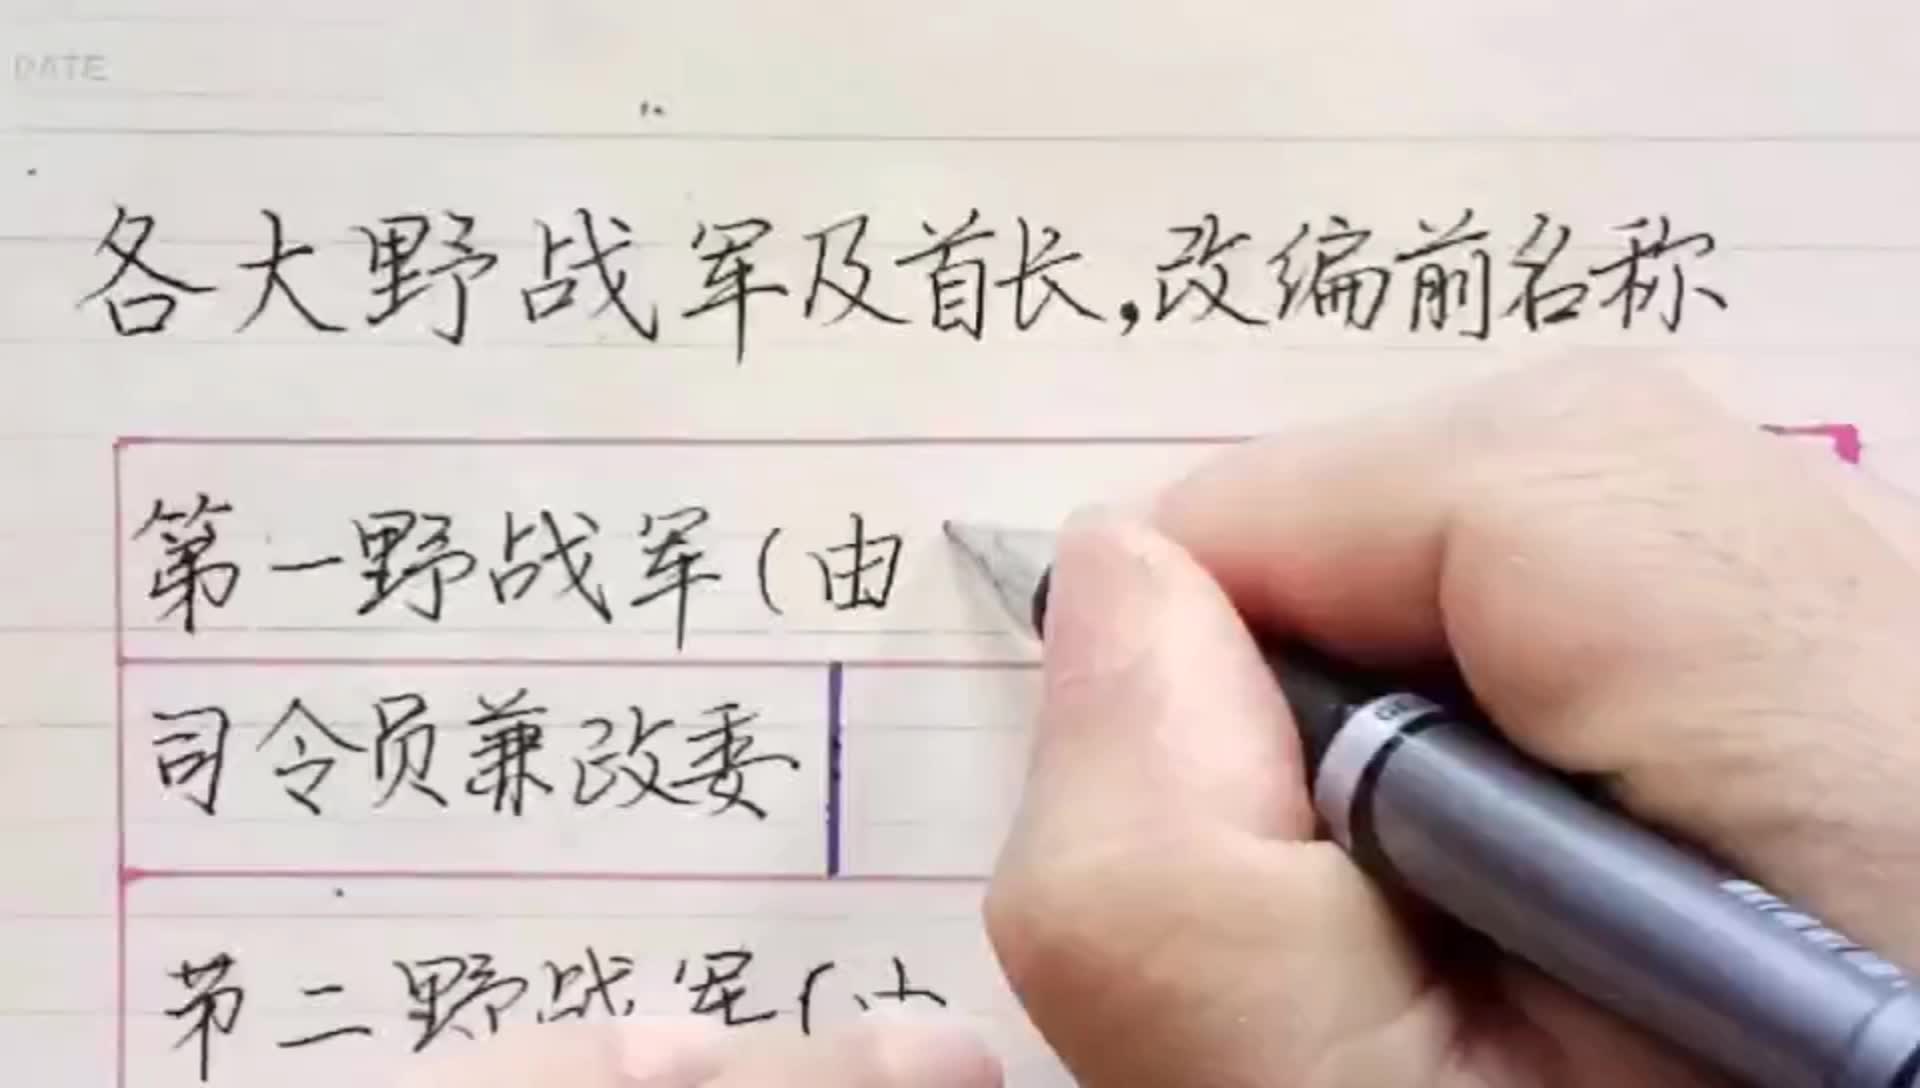 DATE
各大野战军及首长,改编前名称
第一野战军(由
司令员兼政委
第二野战军(